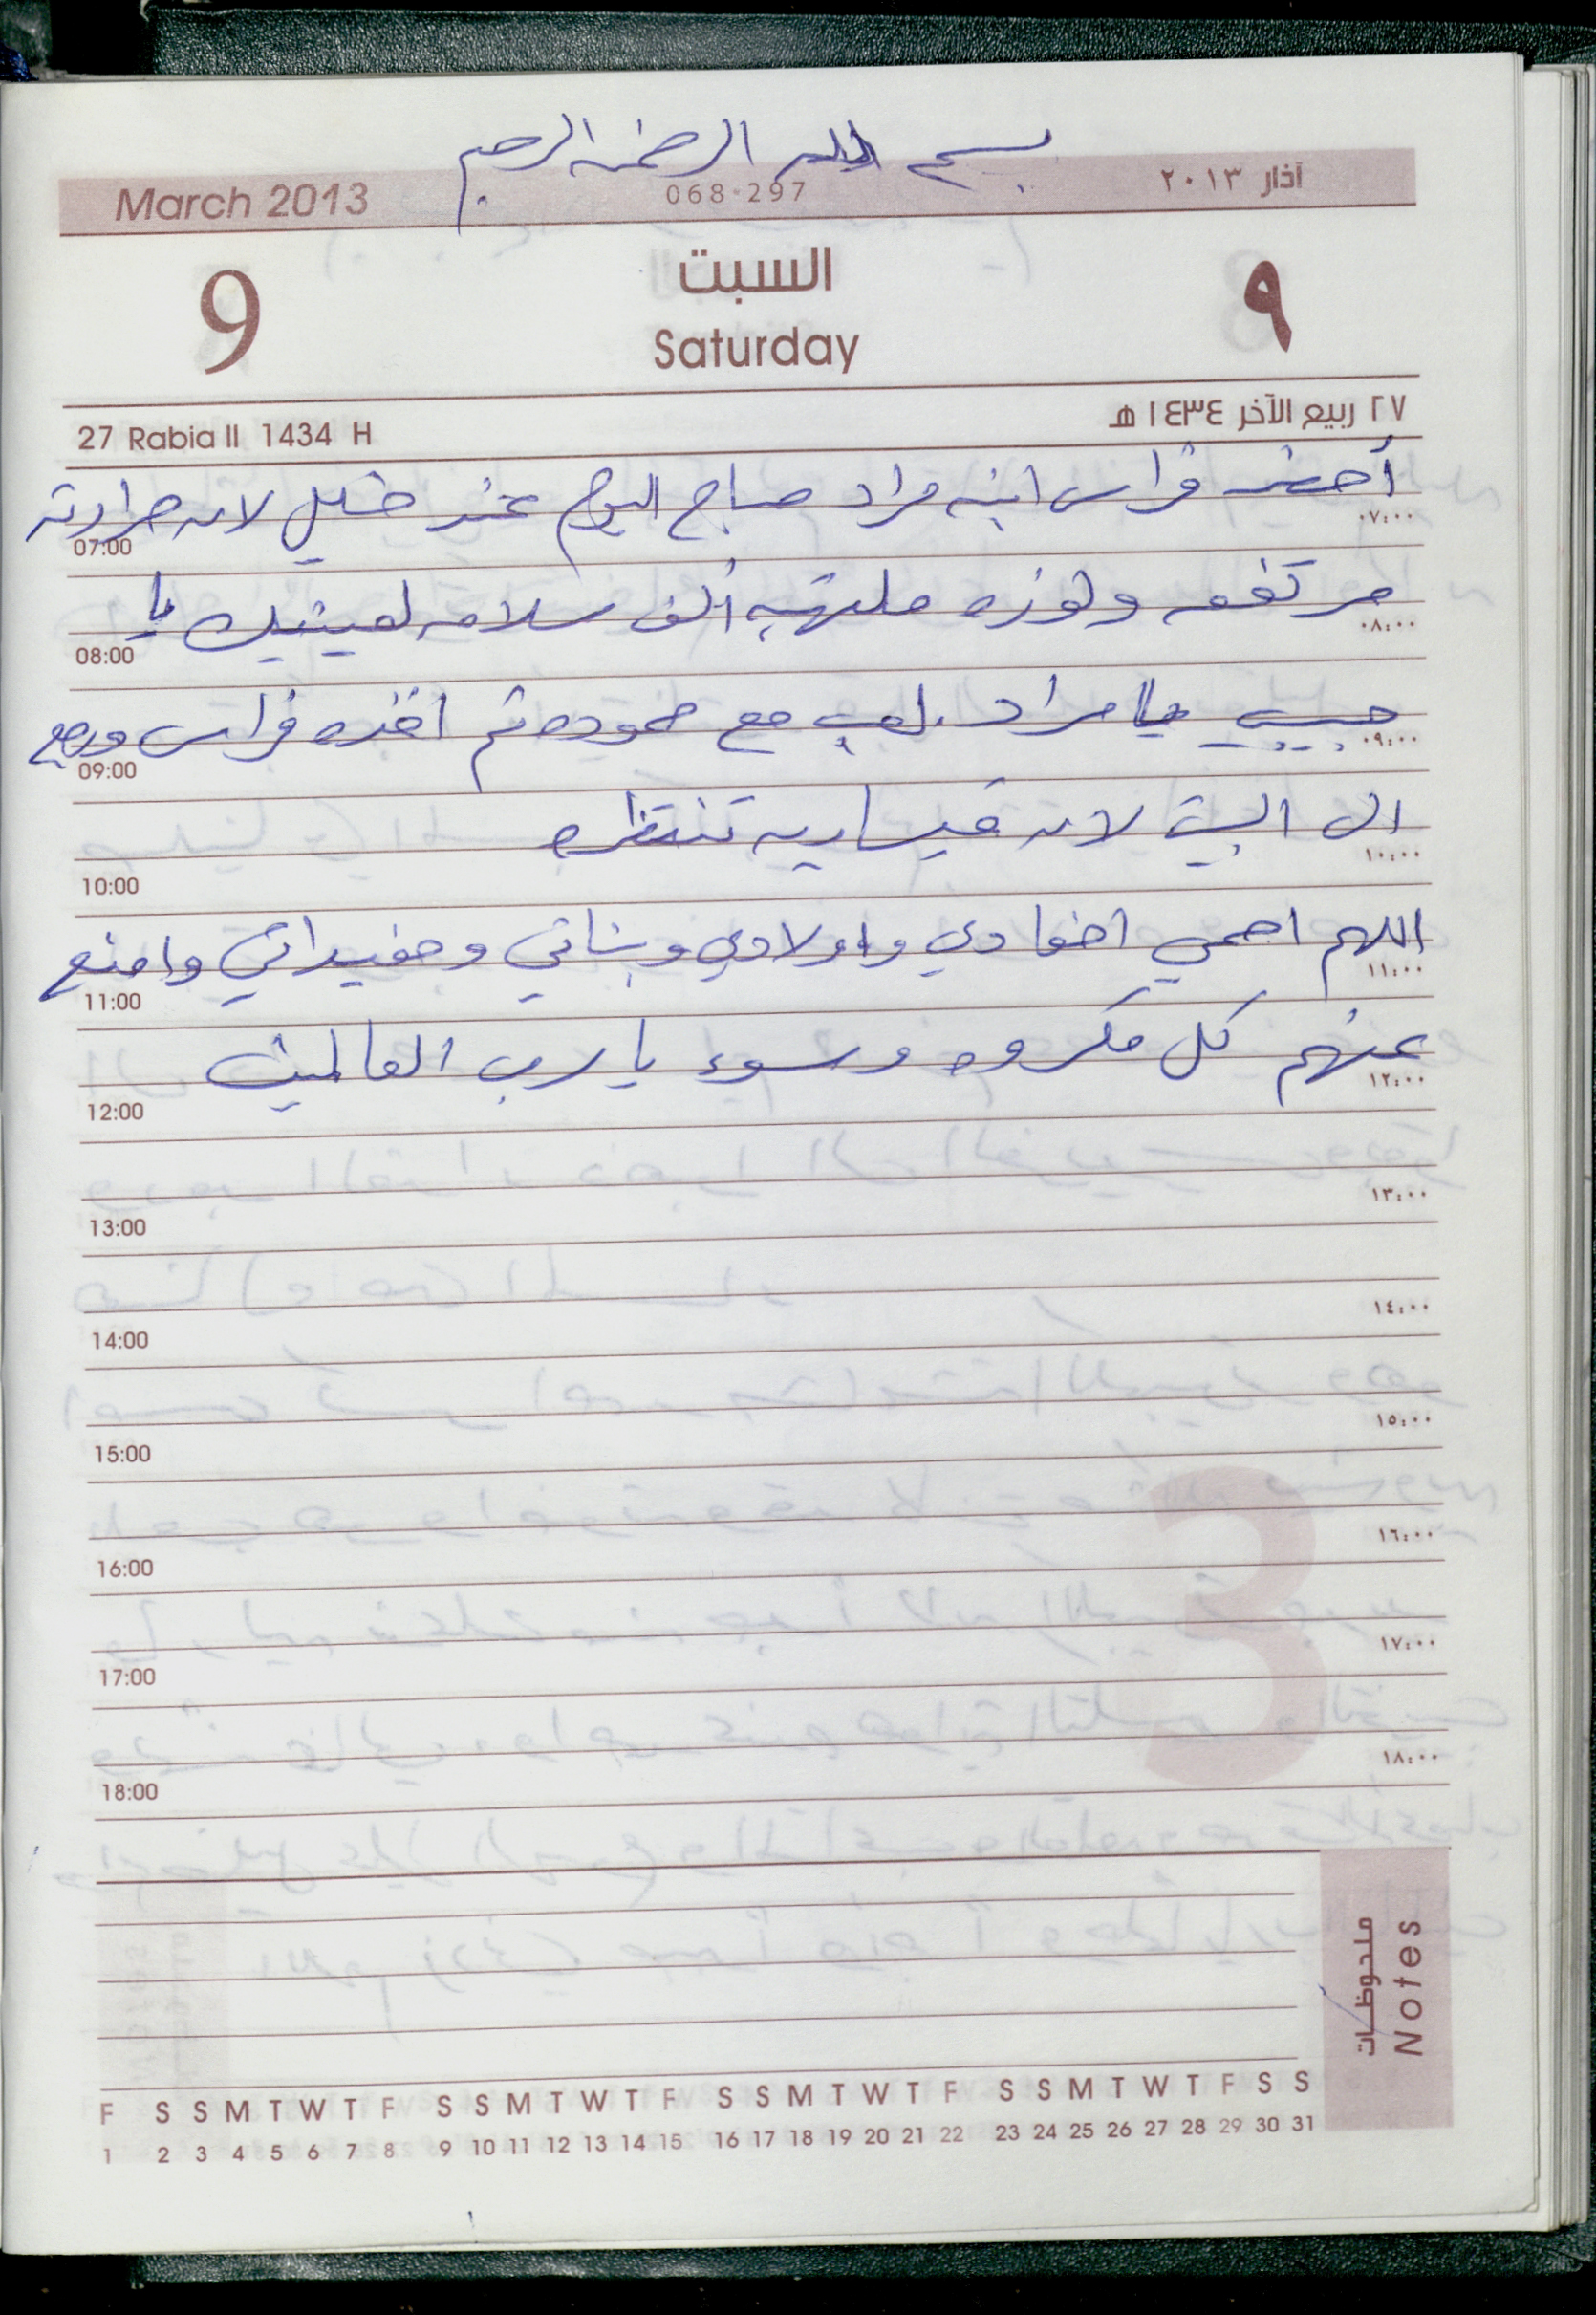 بسم الله الرحمن الرحيم
March 2013 068-297 آذار ٢٠١٣
9 السبت ٩
Saturday
27 Rabia II 1434 H ٢٧ ربيع الآخر ١٤٣٤ هـ
أحضر فراس ابنه مراد صباح اليوم عند خليل لان حرارته
07:00 ٠٧:٠٠
مرتفعه ولوزه ملتهبه ألف سلامه لعينيك يا
08:00 ٠٨:٠٠
حبيبي يا مراد. لعب مع حموده ثم اخذه فراس ورجع
09:00 ٠٩:٠٠
الى البيت لان قيساريه تنتظره
10:00 ١٠:٠٠
اللهم احمي احفادي واولادي وبناتي وحفيداتي وامنع
11:00 ١١:٠٠
عنهم كل مكروه وسوء يا رب العالمين
12:00 ١٢:٠٠
13:00 ١٣:٠٠
14:00 ١٤:٠٠
15:00 ١٥:٠٠
16:00 ١٦:٠٠
17:00 ١٧:٠٠
18:00 ١٨:٠٠
ملحوظات
Notes
F S S M T W T F S S M T W T F S S M T W T F S S M T W T F S S
1 2 3 4 5 6 7 8 9 10 11 12 13 14 15 16 17 18 19 20 21 22 23 24 25 26 27 28 29 30 31